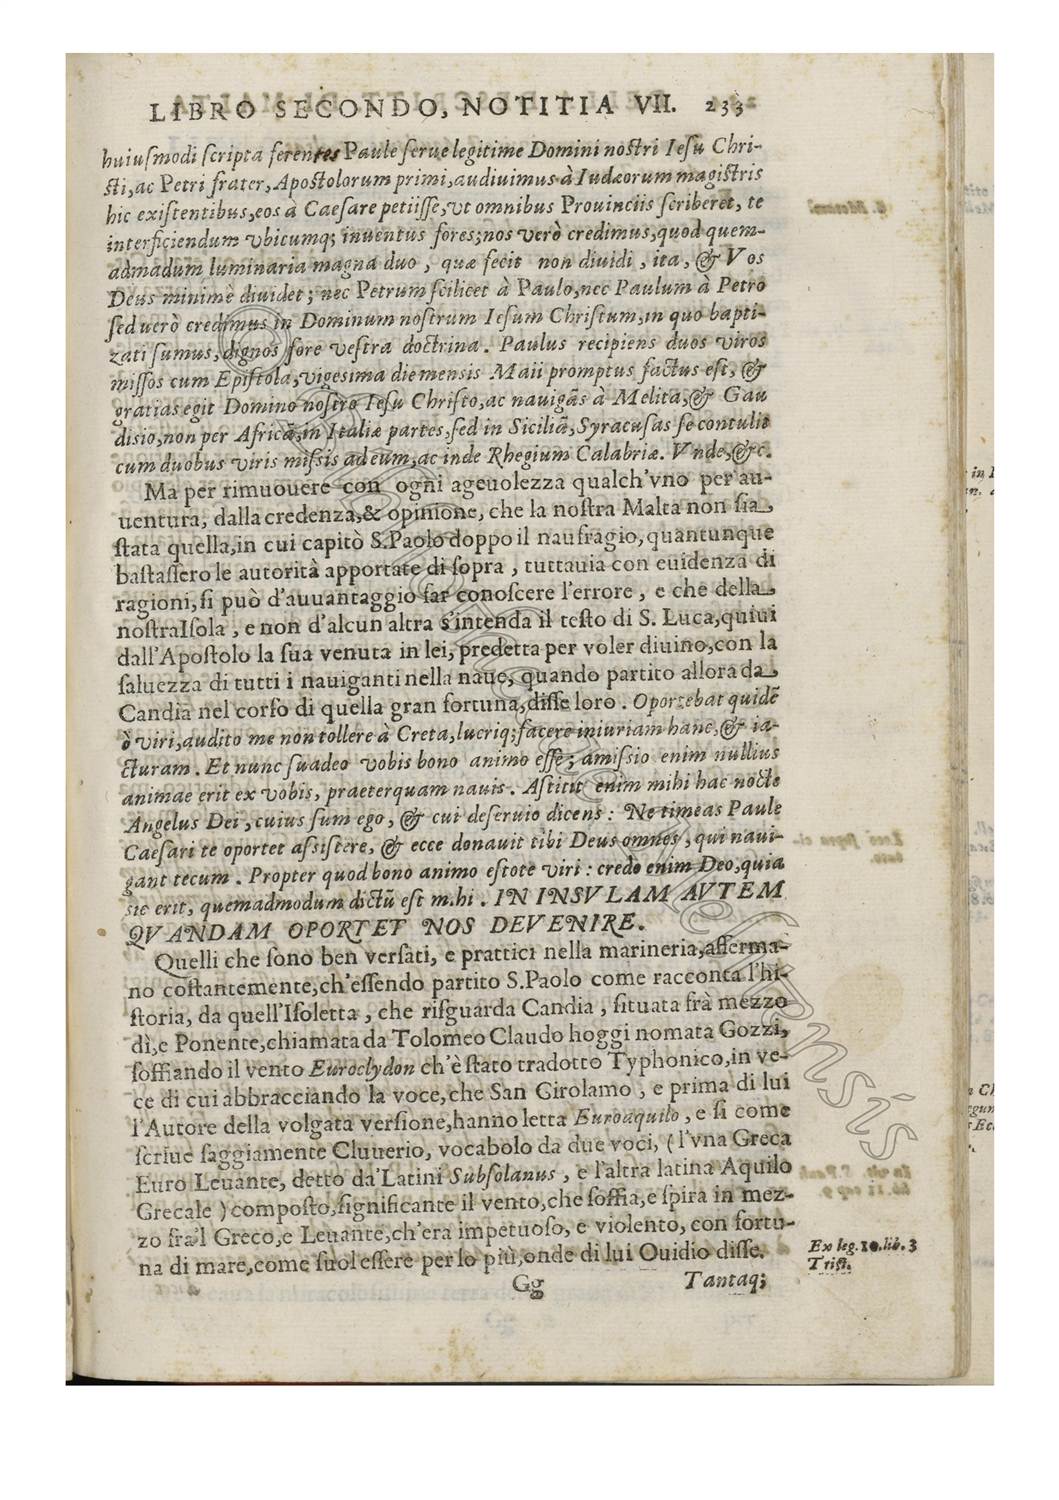 LIBRO SECONDO, NOTITIA VII. 233
huiusmodi scripta ferentes Paule serue legitime Domini nostri Iesu Chri-
sti, ac Petri frater, Apostolorum primi, audiuimus à Iudæorum magistris
hic existentibus, eos à Caesare petijsse, vt omnibus Prouinciis scriberet, te
interficiendum vbicumq; inuentus fores; nos verò credimus, quod quem-
admadum luminaria magna duo, quæ fecit non diuidi, ita, & Vos
Deus minimè diuidet; nec Petrum scilicet à Paulo, nec Paulum à Petro
sed uerò credimus in Dominum nostrum Iesum Christum, in quo bapti-
zati sumus, dignos fore vestra doctrina. Paulus recipiens duos viros
missos cum Epistola, vigesima die mensis Maii promptus factus est, &
gratias egit Domino nostro Iesu Christo, ac nauigãs à Melita, & Gau
disio, non per Africã, in Italiæ partes, sed in Siciliã, Syracusas se contulit
cum duobus viris missis ad eum, ac inde Rhegium Calabriæ. Vnde, &c.
Ma per rimuouere con ogni ageuolezza qualch'vno per au-
uentura, dalla credenza, & opinione, che la nostra Malta non sia
stata quella, in cui capitò S. Paolo doppo il naufragio, quantunque
bastassero le autorità apportate di sopra, tuttauia con euidenza di
ragioni, si può d'auuantaggio far conoscere l'errore, e che della
nostra Isola, e non d'alcun altra s'intenda il testo di S. Luca, quiui
dall'Apostolo la sua venuta in lei, predetta per voler diuino, con la
saluezza di tutti i nauiganti nella naue, quando partito allora da
Candia nel corso di quella gran fortuna, disse loro. Oportebat quidẽ
ò viri, audito me non tollere à Creta, lucriq; facere iniuriam hanc, & ia-
cturam. Et nunc suadeo vobis bono animo esse; amissio enim nullius
animae erit ex vobis, praeterquam nauis. Astitit enim mihi hac nocte
Angelus Dei, cuius sum ego, & cui deseruio dicens: Ne timeas Paule
Caesari te oportet assistere, & ecce donauit tibi Deus omnes, qui naui-
gant tecum. Propter quod bono animo estote viri: credo enim Deo, quia
sic erit, quemadmodum dictũ est m.hi. IN INSVLAM AVTEM
QVANDAM OPORTET NOS DEVENIRE.
Quelli che sono ben versati, e prattici nella marineria, afferma-
no costantemente, ch'essendo partito S. Paolo come racconta l'hi-
storia, da quell'Isoletta, che risguarda Candia, situata frà mezzo
dì, e Ponente, chiamata da Tolomeo Claudo hoggi nomata Gozzi,
soffiando il vento Euroclydon ch'è stato tradotto Typhonico, in ve-
ce di cui abbracciando la voce, che San Girolamo, e prima di lui
l'Autore della volgata versione, hanno letta Euroaquilo, e si come
scriue saggiamente Cluuerio, vocabolo da due voci, (l'vna Greca
Euro Leuante, detto da' Latini Subsolanus, e l'altra latina Aquilo
Grecale) composto, significante il vento, che soffia, e spira in mez-
zo fra'l Greco, e Leuante, ch'era impetuoso, e violento, con fortu-
na di mare, come suol essere per lo più, onde di lui Ouidio disse.
Ex leg. 10. lib. 3
Trist.
Gg Tantaq;
Bibliotheca Melitensis